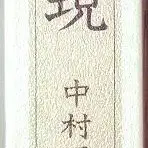 現
中村